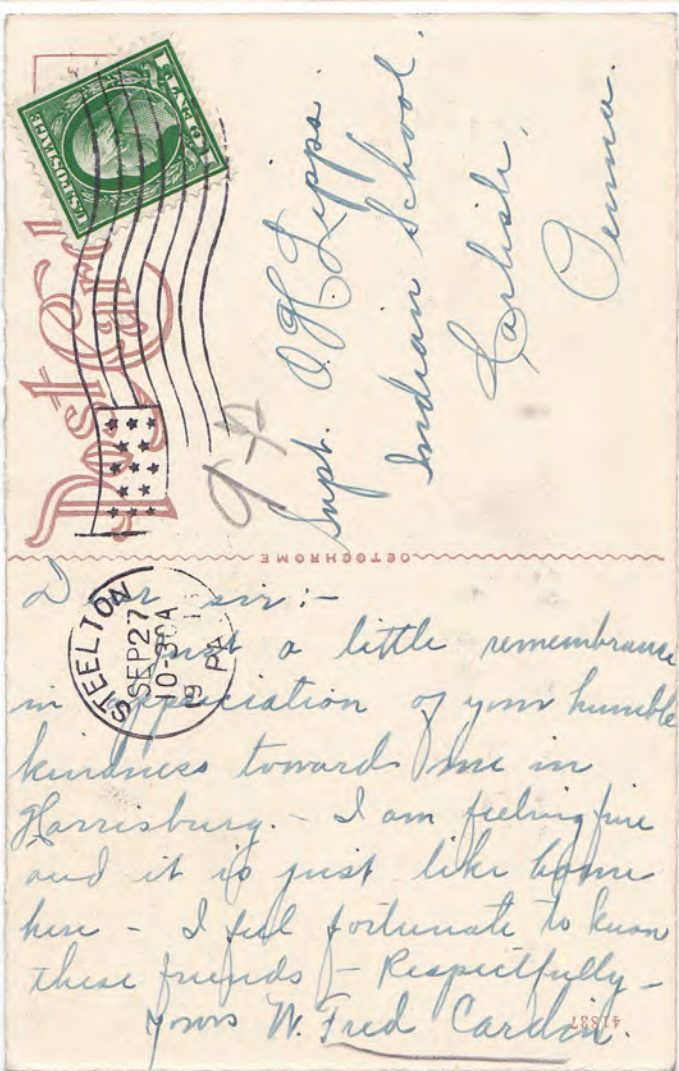 Post Card
U.S. POSTAGE
STEELTON
SEP 27
10-30A
19
PA
9-4
Supt. O. H. Lipps.
Indian School,
Carlisle,
Penna.
OCTOCHROME
Dear sir:-
Just a little remembrance
in appreciation of your humble
kindness toward me in
Harrisburg. - I am feeling fine
and it is just like home
here - I feel fortunate to know
these friends - Respectfully -
yours W. Fred Cardin.
41837